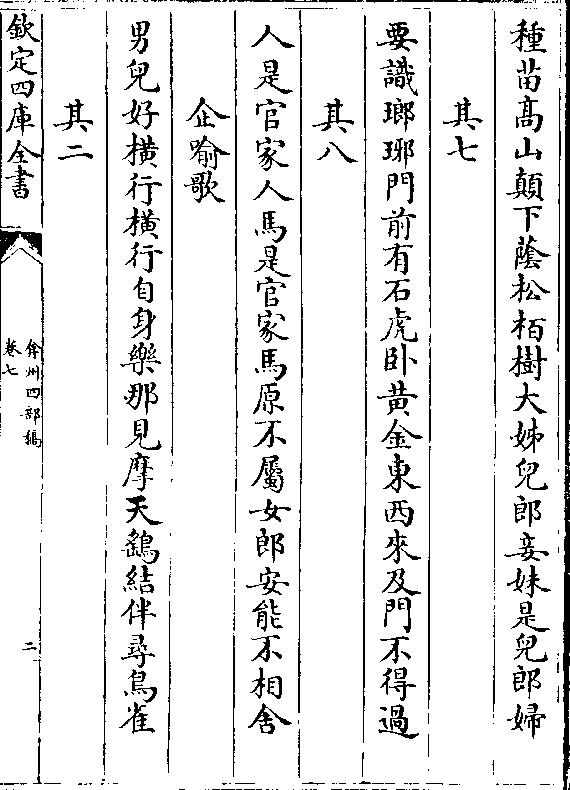 種苗髙山顛下蔭松栢樹大姊兒郎妾妹是兒郎婦
其七
要識瑯琊門前有石虎卧黄金東西來及門不得過
其八
人是官家人馬是官家馬原不屬女郎安能不相舍
企喻歌
男兒好橫行橫行自身樂那見摩天鷂結伴尋鳥雀
其二
欽定四庫全書
弇州四部稿
卷七
二